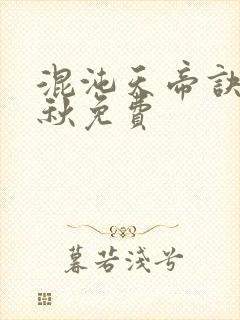 混沌天帝訣
秋免費
暮若淺兮